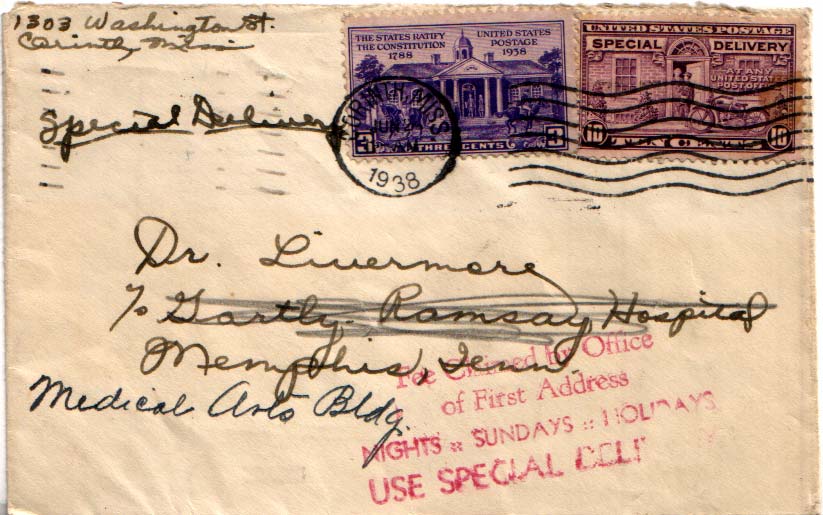 1303 Washington St.
Corinth, Miss
Special Delivery
THE STATES RATIFY
THE CONSTITUTION
1788
UNITED STATES
POSTAGE
1938
3 THREE CENTS 3
UNITED STATES POSTAGE
SPECIAL DELIVERY
AT ANY
UNITED STATES
POST OFFICE
10 TEN CENTS 10
CORINTH, MISS
JUN
AM
1938
Dr. Livermore
% Gartly-Ramsay Hospital
Memphis, Tenn.
Medical Arts Bldg.
Fee Claimed by Office
of First Address
NIGHTS :: SUNDAYS :: HOLIDAYS
USE SPECIAL DELI Y